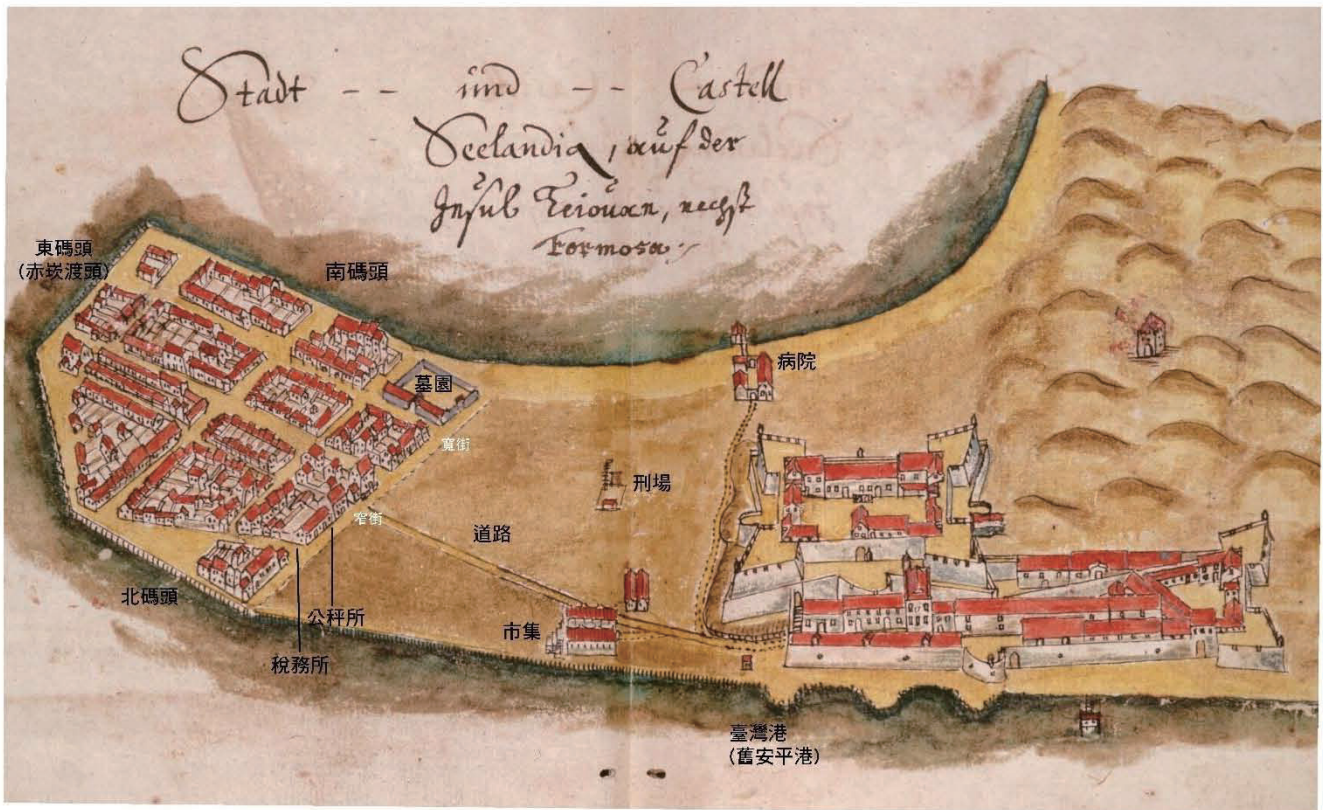 Stadt -- und -- Castell
Seelandia, auf der
Insul Teiouan, nechst
Formosa
東碼頭
(赤崁渡頭)
南碼頭
病院
墓園
寬街
刑場
窄街
道路
北碼頭
公秤所
市集
稅務所
臺灣港
(舊安平港)